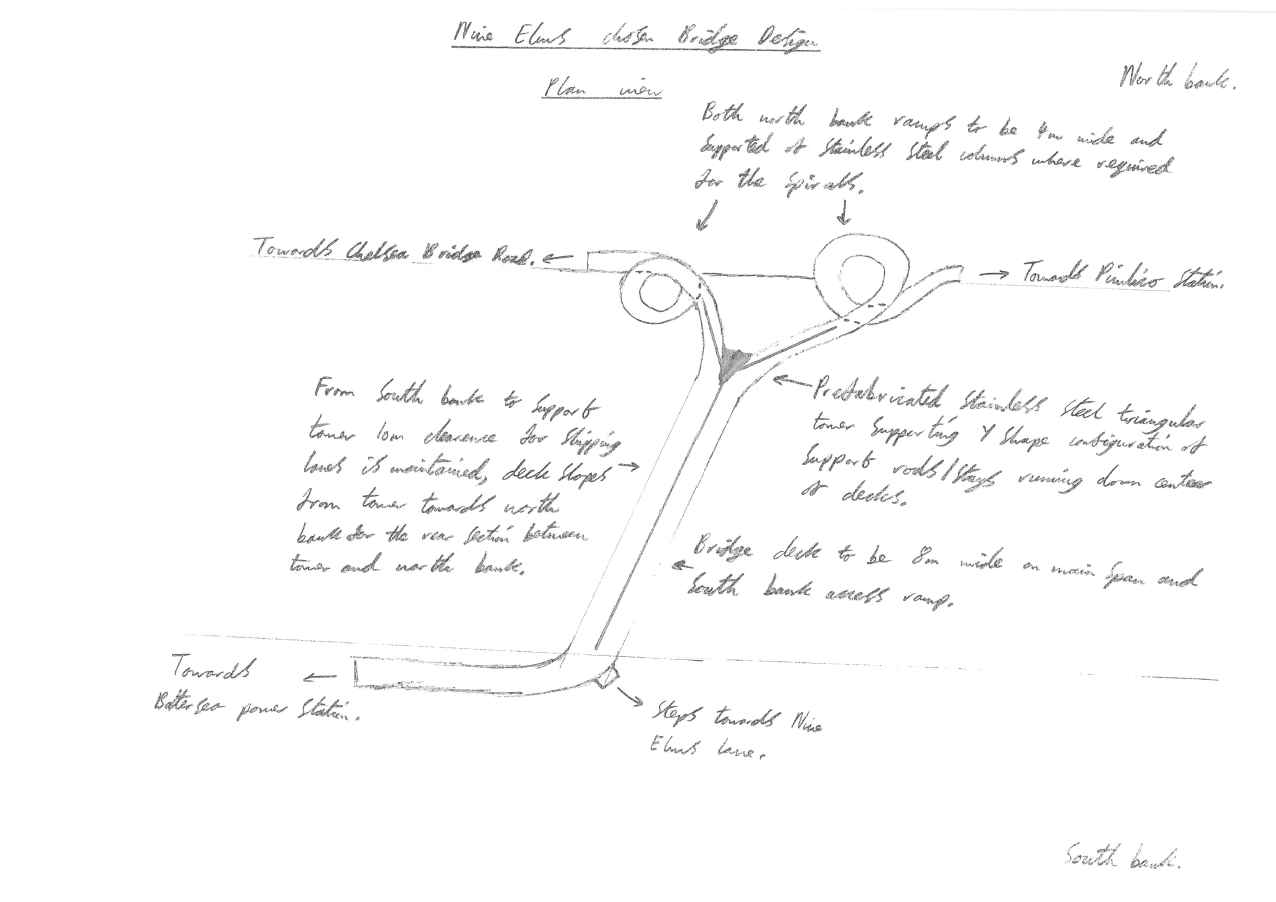 Nine Elms chosen Bridge Design
Plan view
North bank.
Both north bank ramps to be 4m wide and
Supported of Stainless Steel columns where required
for the Spirals.
Towards Chelsea Bridge Road.
Towards Pimlico Station.
From South bank to Support
tower 10m clearence for Shipping
lanes is maintained, deck Slopes
from tower towards north
bank for the rear Section between
tower and north bank.
Prefabricated Stainless Steel triangular
tower Supporting Y Shape configuration of
Support rods/Stays running down center
of decks.
Bridge deck to be 8m wide on main Span and
South bank access ramp.
Towards
Battersea power Station.
Steps towards Nine
Elms Lane.
South bank.